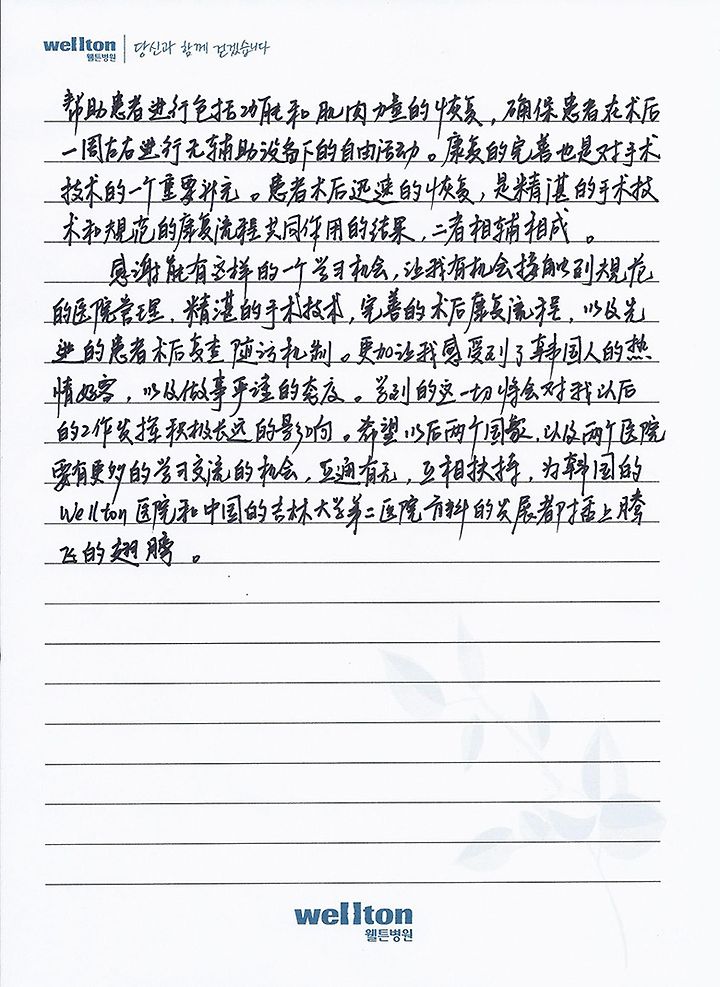 wellton
웰튼병원
당신과 함께 걷겠습니다
帮助患者进行包括功能和肌肉力量的恢复，确保患者在术后
一周左右进行无辅助设备下的自由活动。康复的完善也是对手术
技术的一个重要补充。患者术后迅速的恢复，是精湛的手术技
术和规范的康复流程共同作用的结果，二者相辅相成。
感谢能有这样的一个学习机会，让我有机会接触到规范
的医院管理，精湛的手术技术，完善的术后康复流程，以及先
进的患者术后复查随访机制。更加让我感受到了韩国人的热
情好客，以及做事严谨的态度。学到的这一切将会对我以后
的工作发挥积极长远的影响。希望以后两个国家，以及两个医院
要有更多的学习交流的机会，互通有无，互相扶持，为韩国的
Wellton医院和中国的吉林大学第二医院骨科的发展都插上腾
飞的翅膀。
wellton
웰튼병원